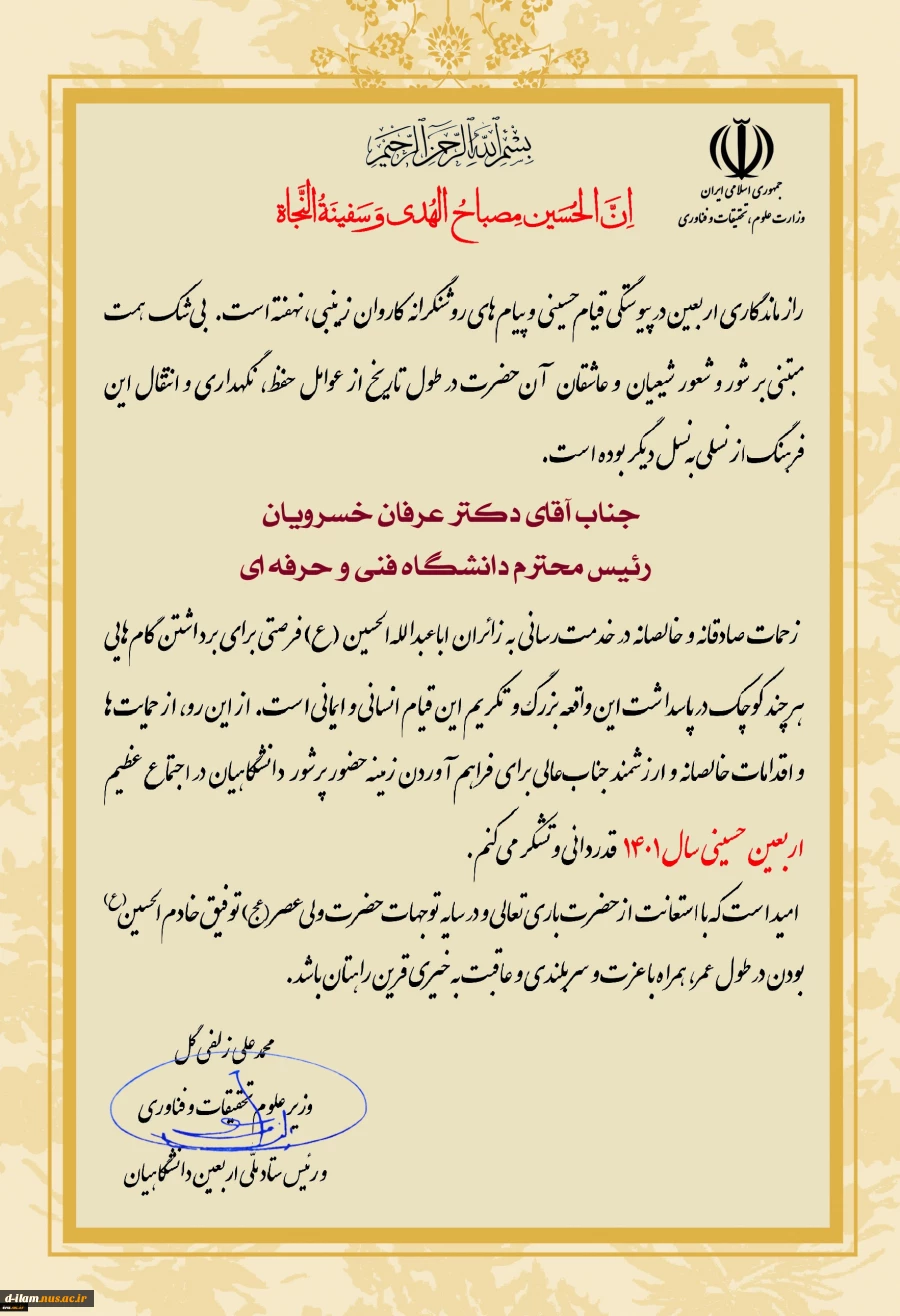 بسم الله الرحمن الرحیم
جمهوری اسلامی ایران
وزارت علوم، تحقیقات و فناوری
اِنَّ الحُسَین مِصباحُ الهُدی وَ سَفینَةُ النَّجاة
راز ماندگاری اربعین در پیوستگی قیام حسینی و پیام های روشنگرانه کاروان زینبی، نهفته است. بی شک همت
مبتنی بر شور و شعور شیعیان و عاشقان آن حضرت در طول تاریخ از عوامل حفظ، نگهداری و انتقال این
فرهنگ از نسلی به نسل دیگر بوده است.
جناب آقای دکتر عرفان خسرویان
رئیس محترم دانشگاه فنی و حرفه ای
زحمات صادقانه و خالصانه در خدمت رسانی به زائران اباعبدالله الحسین (ع) فرصتی برای برداشتن گام هایی
هر چند کوچک در پاسداشت این واقعه بزرگ و تکریم این قیام انسانی و ایمانی است. از این رو، از حمایت ها
و اقدامات خالصانه و ارزشمند جناب عالی برای فراهم آوردن زمینه حضور پرشور دانشگاهیان در اجتماع عظیم
اربعین حسینی سال ۱۴۰۱ قدردانی و تشکر می کنم.
امید است که با استعانت از حضرت باری تعالی و در سایه توجهات حضرت ولی عصر (عج) توفیق خادم الحسین (ع)
بودن در طول عمر، همراه با عزت و سربلندی و عاقبت به خیری قرین راهتان باشد.
محمد علی زلفی گل
وزیر علوم تحقیقات و فناوری
و رئیس ستاد ملّی اربعین دانشگاهیان
d-ilam.nus.ac.ir